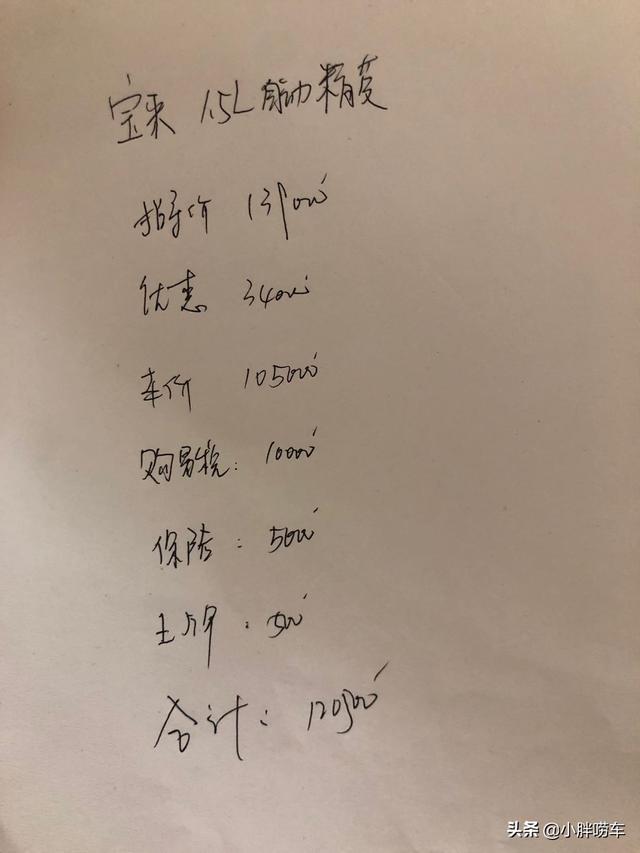 宝来 1.5L 自动精英
指导价 139000
优惠 34000
车价 105000
购置税: 10000
保险: 5000
上牌: 500
合计: 120500
头条 @小胖唠车